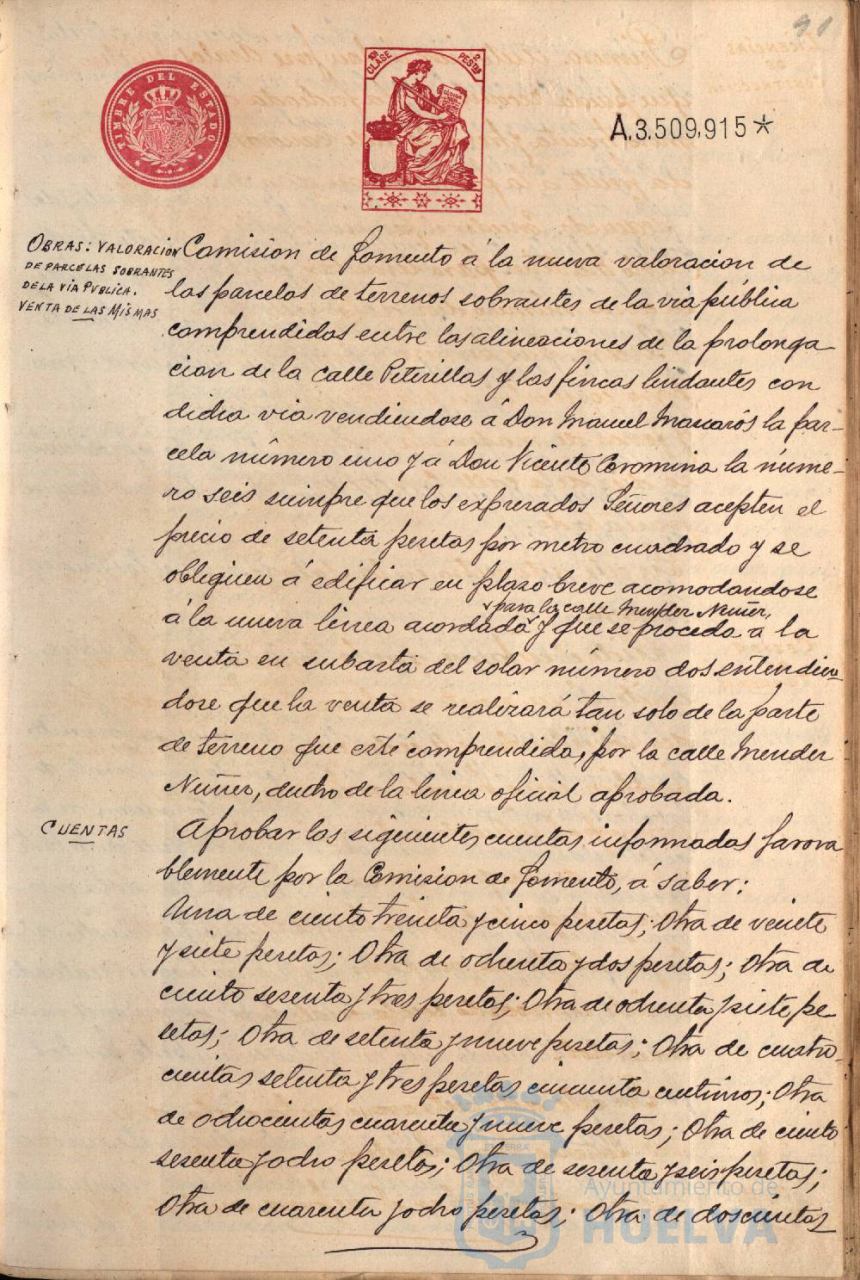 91
TIMBRE DEL ESTADO
10ª CLASE 2 PESTAS
A.3.509,915*
OBRAS: VALORACION
DE PARCELAS SOBRANTES
DE LA VÍA PUBLICA.
VENTA DE LAS MISMAS
Comision de fomento á la nueva valoracion de
las parcelas de terrenos sobrantes de la via pública
comprendidas entre las alineaciones de la prolonga
cion de la calle Peterillas y las fincas lindantes con
dicha via vendiendose á Don Manuel Mascarós la par-
cela número uno y á Don Vicente Coromina la núme-
ro seis siempre que los expresados Señores acepten el
precio de setenta pesetas por metro cuadrado y se
obliguen á edificar en plazo breve acomodandose
para la calle Mendez Nuñez,
á la nueva linea acordada y que se proceda á la
venta en subasta del solar número dos entendien
dose que la venta se realizará tan solo de la parte
de terreno que esté comprendida, por la calle Mendez
Nuñez, dentro de la linea oficial aprobada.
CUENTAS
Aprobar las siguientes cuentas informadas favora
blemente por la Comision de fomento, á saber:
Una de ciento treinta y cinco pesetas; Otra de veinte
y siete pesetas; Otra de ochenta y dos pesetas; Otra de
ciento sesenta y tres pesetas; Otra de ochenta y siete pe
setas; Otra de setenta y nueve pesetas; Otra de cuatro-
cientas setenta y tres pesetas cincuenta centimos; Otra
de ochocientas cuarenta y nueve pesetas; Otra de ciento
sesenta y ocho pesetas; Otra de sesenta y seis pesetas;
Otra de cuarenta y ocho pesetas; Otra de doscientas
Ayuntamiento de
HUELVA